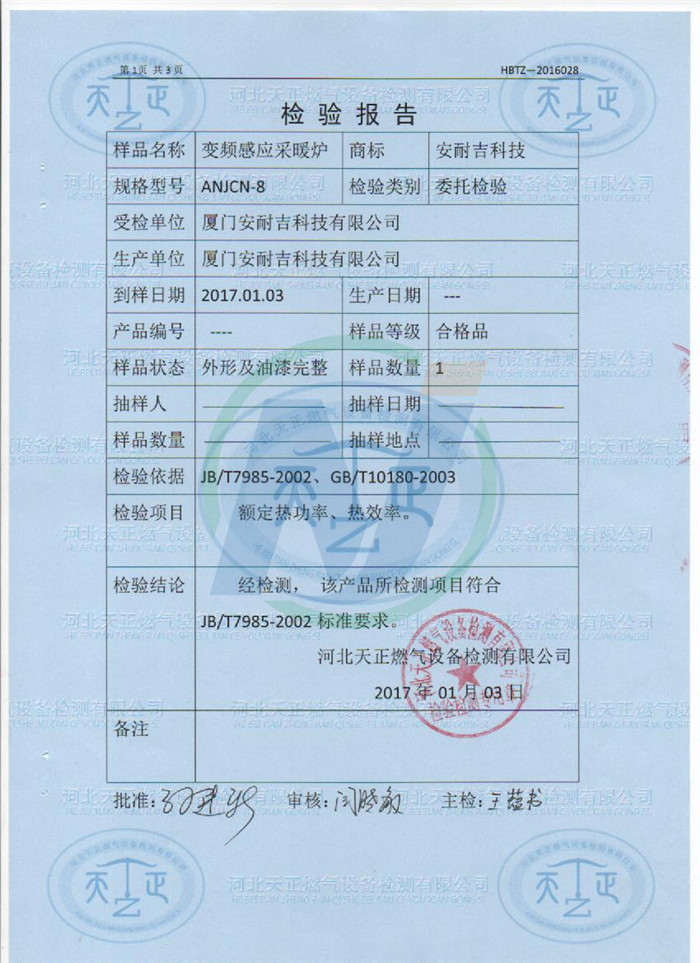 第1页 共3页 HBTZ—2016028
检验报告
样品名称 变频感应采暖炉 商标 安耐吉科技
规格型号 ANJCN-8 检验类别 委托检验
受检单位 厦门安耐吉科技有限公司
生产单位 厦门安耐吉科技有限公司
到样日期 2017.01.03 生产日期 ---
产品编号 ---- 样品等级 合格品
样品状态 外形及油漆完整 样品数量 1
抽样人 抽样日期
样品数量 抽样地点
检验依据 JB/T7985-2002、GB/T10180-2003
检验项目 额定热功率、热效率。
检验结论 经检测， 该产品所检测项目符合
JB/T7985-2002 标准要求。
河北天正燃气设备检测有限公司
2017 年 01 月 03 日
备注
批准： 审核： 主检：